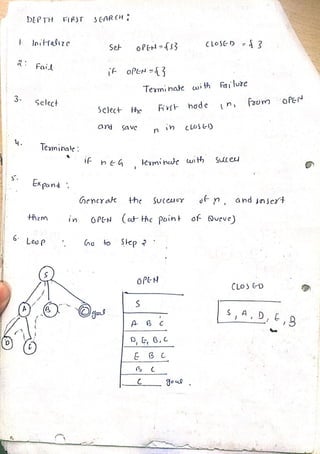 DEPTH FIRST SEARCH:
1. Initialize Set OPEN={S} CLOSED={ }
2: Fail if OPEN={ }
Terminate with Failure
3. Select Select the First node, n, from OPEN
and save n in CLOSED
4. Terminate:
if n ∈ G, terminate with success
5. Expand:
Generate the successor of n, and insert
them in OPEN (at the point of Queve)
6. Loop: Go to step 2:
OPEN
CLOSED
S
S
S, A, D, E, B
A B C
A B C goal
D, E, B, C
D E
E B C
B C
C goal.